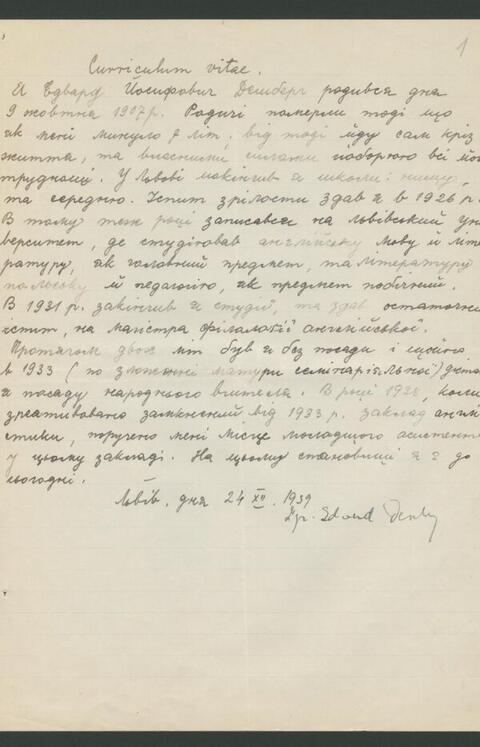 1
Curriculum vitae.
Я Едвард Йосифович родився дня
9 жовтня 1907 р. Родичі померли тоді що
як мені минуло літ, від тоді йду сам крізь
життя, та власними силами поборюю всі його
труднощі. У Львові закінчив я школи: нищу,
та середню. Іспит зрілости здав я в 1926 р.
В тому теж році записався на львівский Уні
верситет, де студіював англійську мову й літе
ратуру, як головний предмет, та літературу
польську й педагогію, як предмет побічний.
В 1931 р. закінчив я студії, та здав остаточний
іспит, на магістра філології англійської.
Протягом двох літ був я без посади і щойно
в 1933 (по зложенні матури семінаріяльної) дістав
я посаду народнього вчителя. В році 1938, коли
зреактивовано замкнений від 1933 р. заклад англі
стики, поручено мені місце молодшого асистента
у цьому закладі. На цьому становищі я є до
сьогодні.
Львів, дня 24 XII. 1939